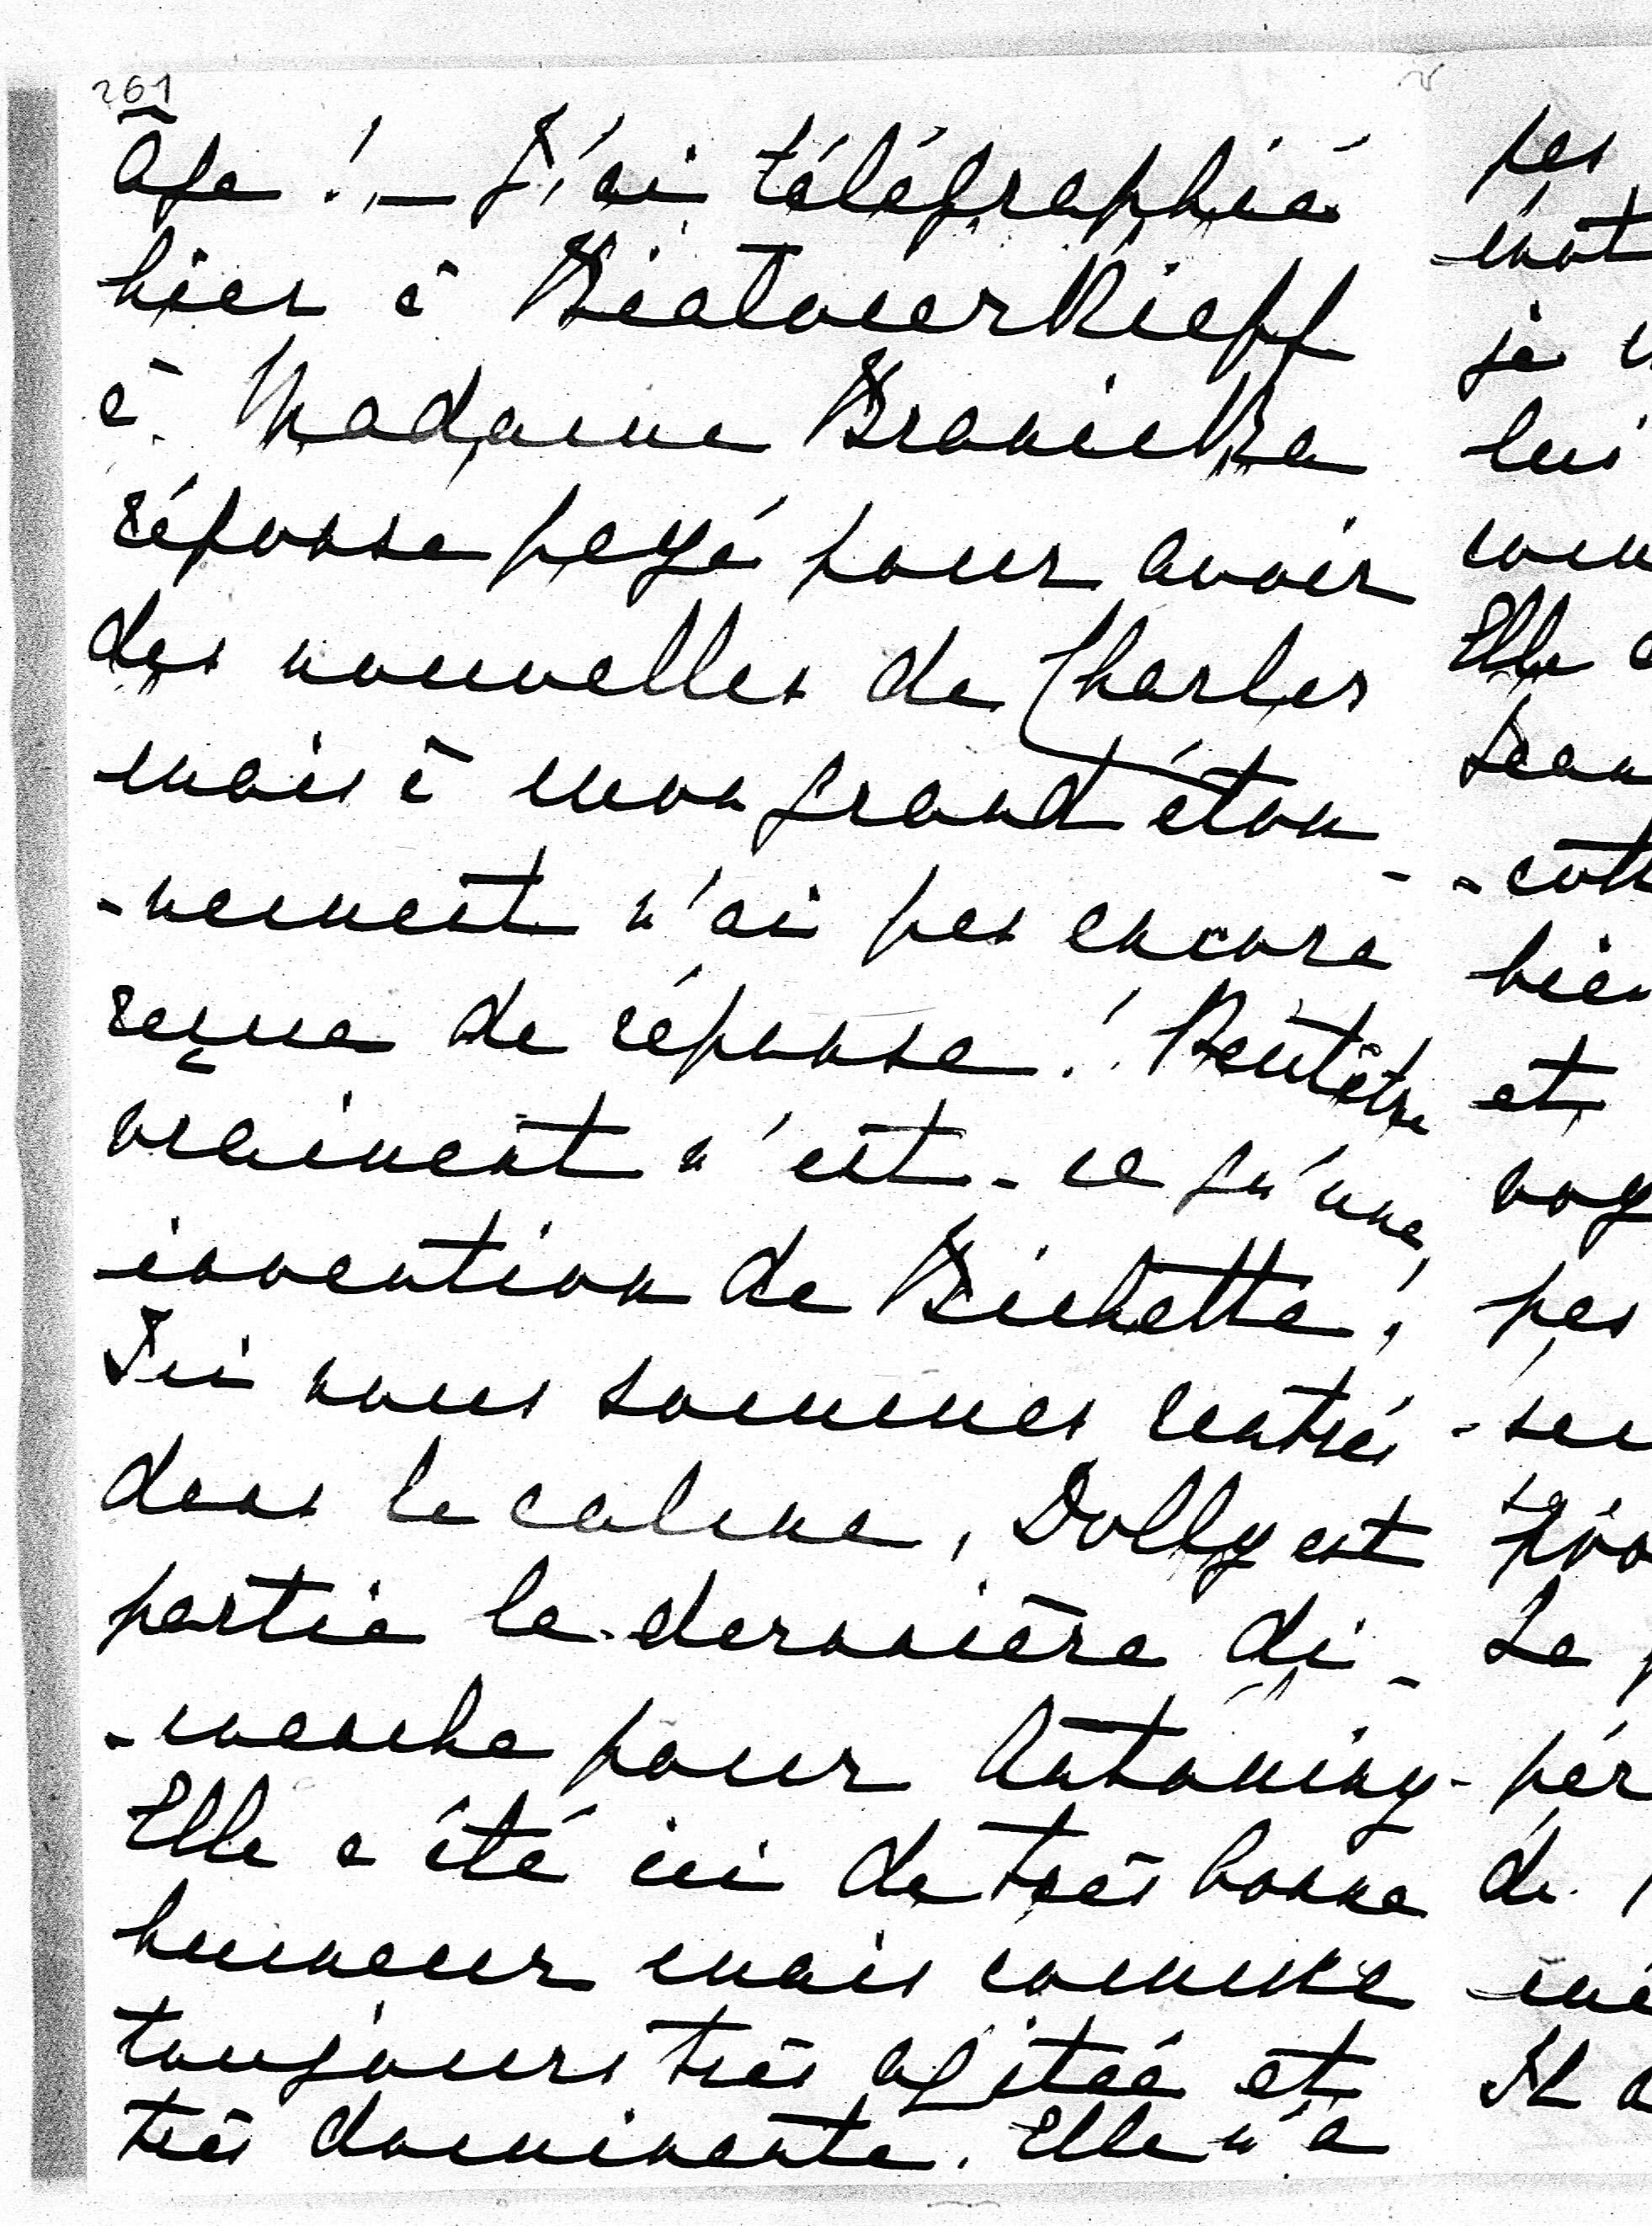 261
âge ! — J'ai télégraphié
hier à Bialocerkieff
à Madame Branicka
réponse payé pour avoir
des nouvelles de Charles
mais à mon grand éton-
-nement n'ai pas encore
reçue de réponse ! Peutêtre
vraiment n'est-ce qu'une
invention de Bichette !
Ici nous sommes rentrés
dans le calme, Dolly est
partie la dernière di-
-manche pour Antoniny-
Elle a été ici de très bonne
humeur mais comme
toujours très agitée et
très dominante. Elle n'a
pas
mot
je
lui
Elle
et
pas
Le
de
Il